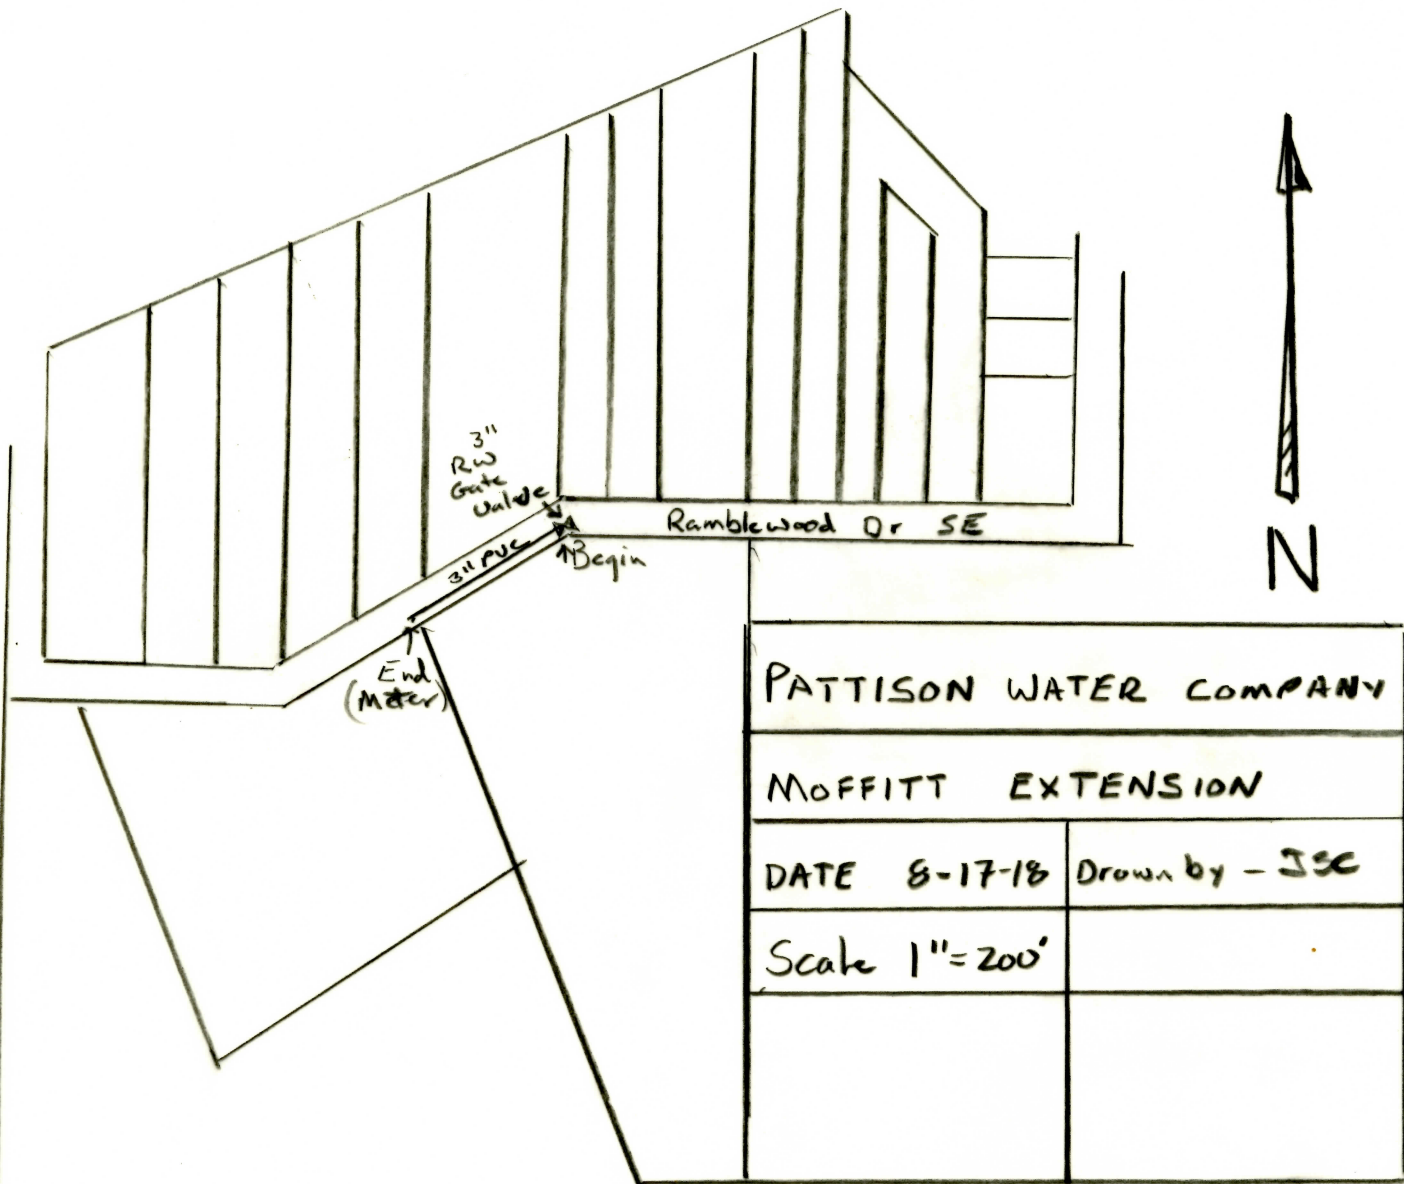 3"
RW
Gate
Valve
Ramblewood Dr SE
3" PVC
Begin
End
(Meter)
N
PATTISON WATER COMPANY
MOFFITT EXTENSION
DATE 8-17-18
Drawn by - JSC
Scale 1"=200'